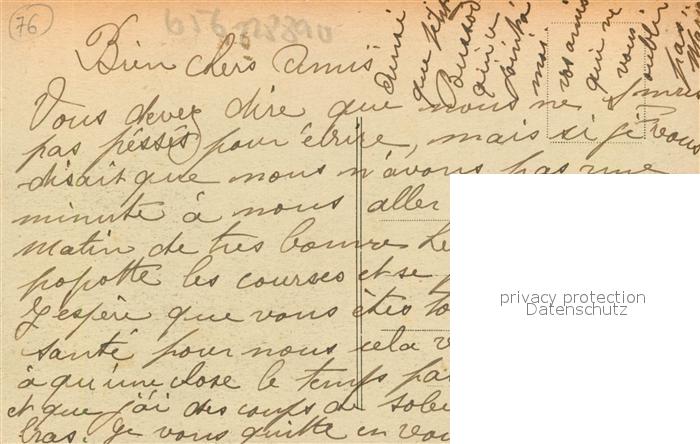 76
Bien chers Amis
Vous devez dire que nous ne sommes
pas pressés pour écrire, mais si je vous
disait que nous n'avons pas une
minute à nous aller
matin de tres bonne he
popotte les courses et se
J'espère que vous êtes to
santé pour nous cela v
à qu'une chose le temps pa
et que j'ai des coups de solei
bras. Je vous quitte en vou
ainsi
que
qui a
moi
vos amis
qui ne
vous
oublie
pas
privacy protection
Datenschutz